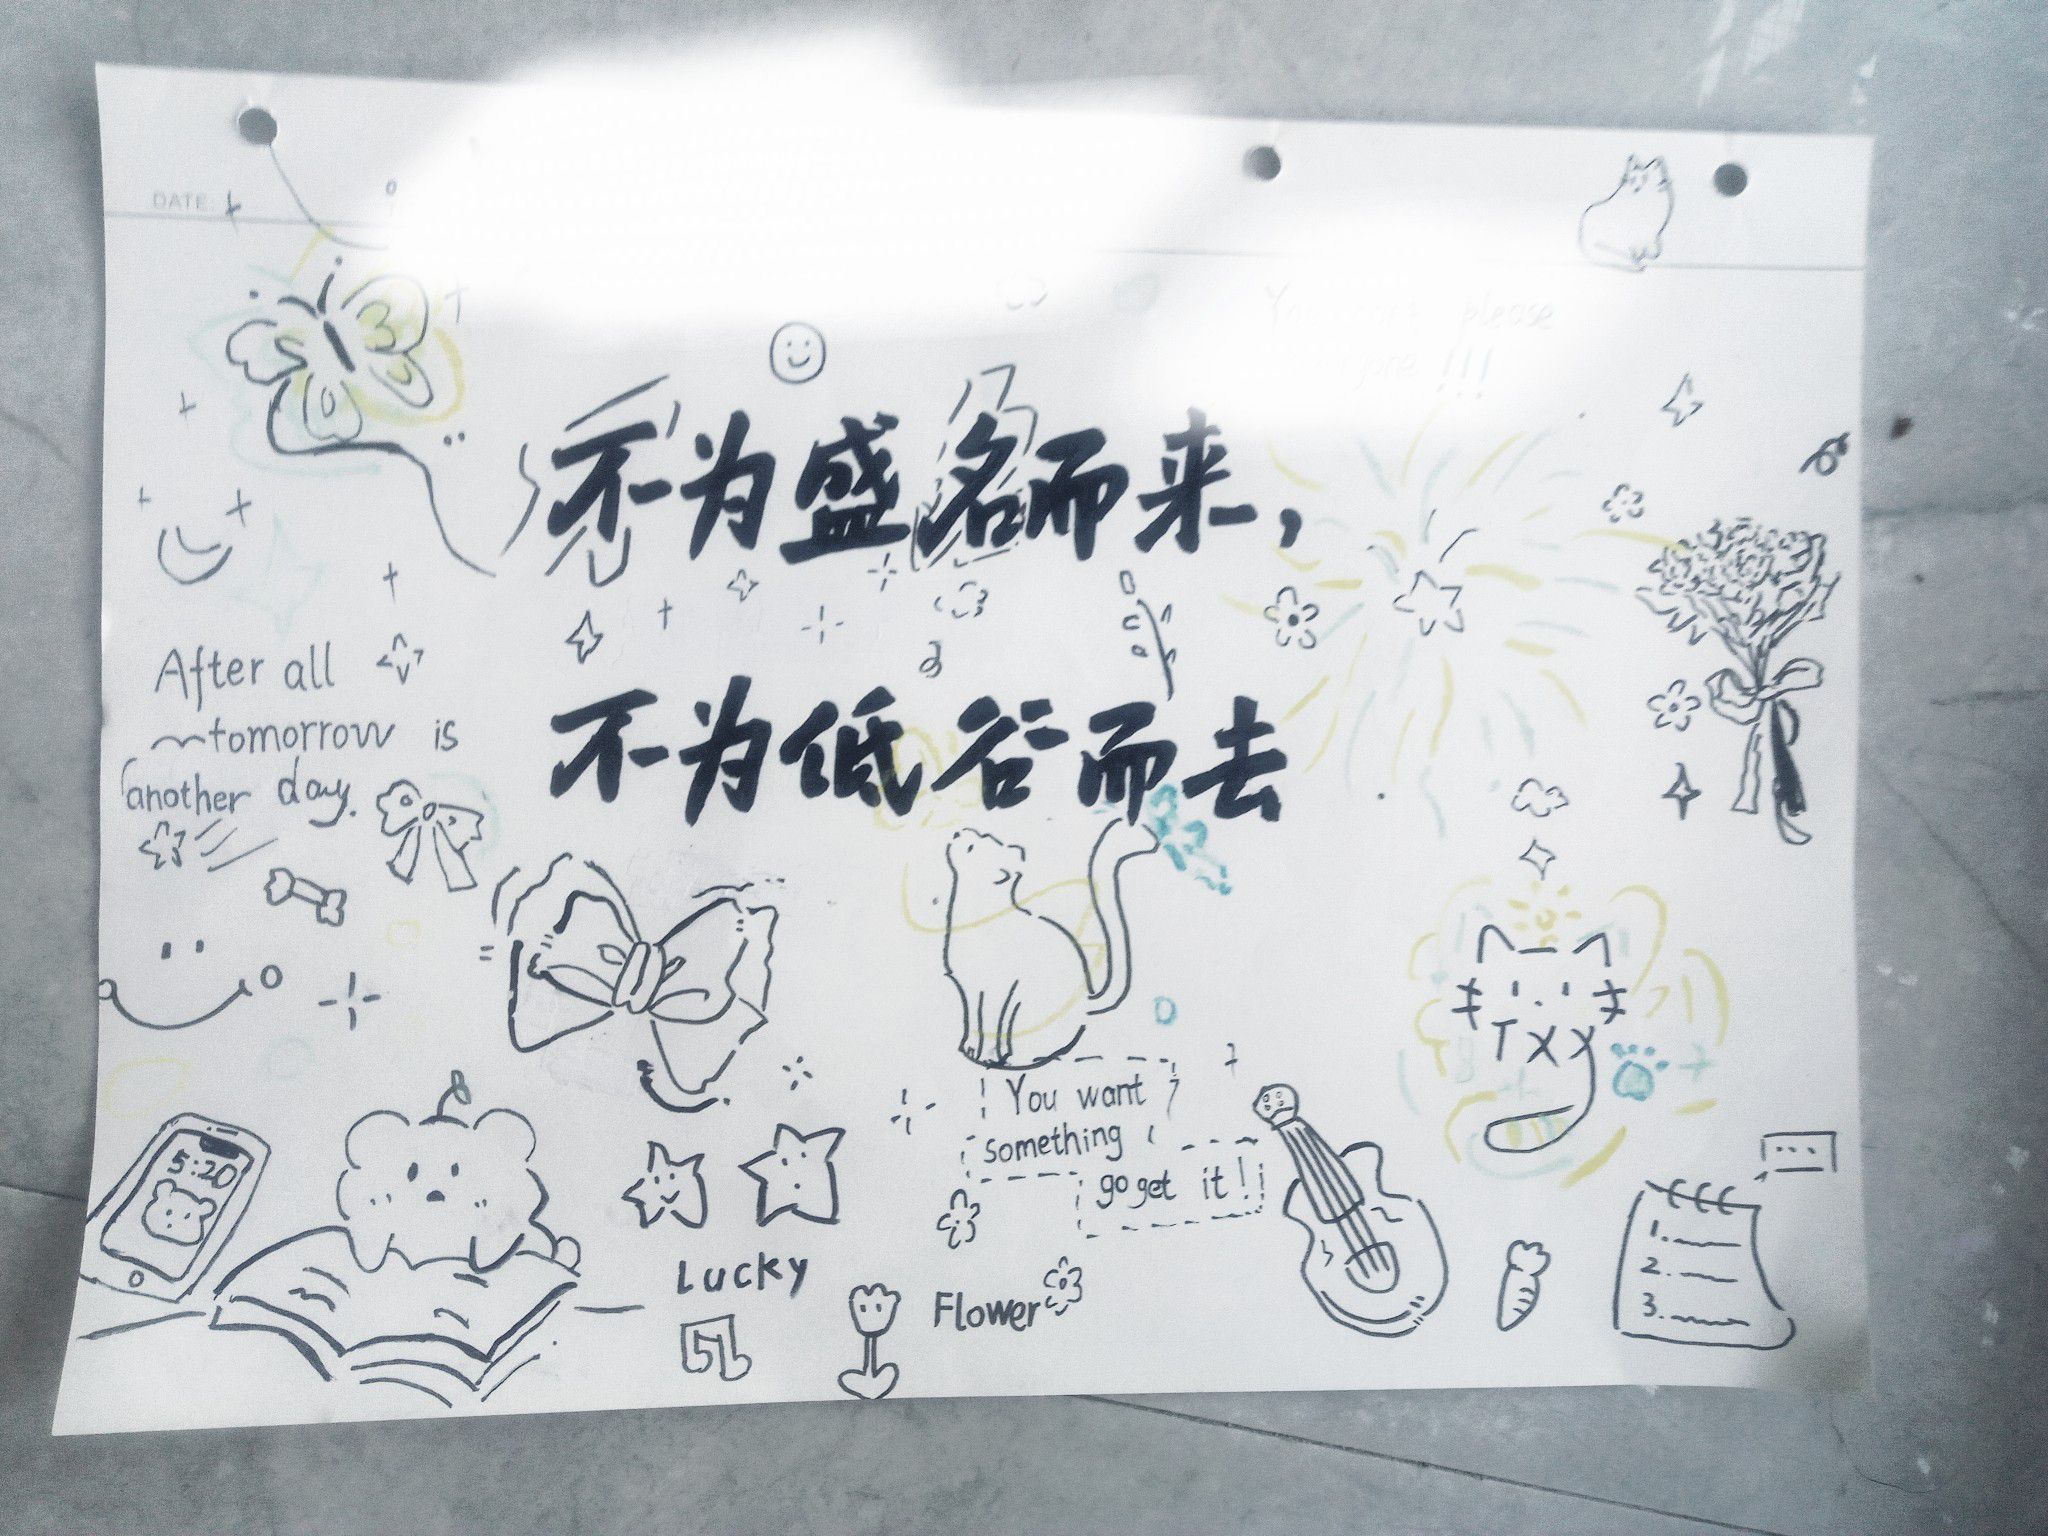 DATE:
please
!!!
不为盛名而来，
不为低谷而去
After all
tomorrow is
another day.
TXX
You want
something
go get it!!
5:20
Lucky
Flower
1.
2.
3.